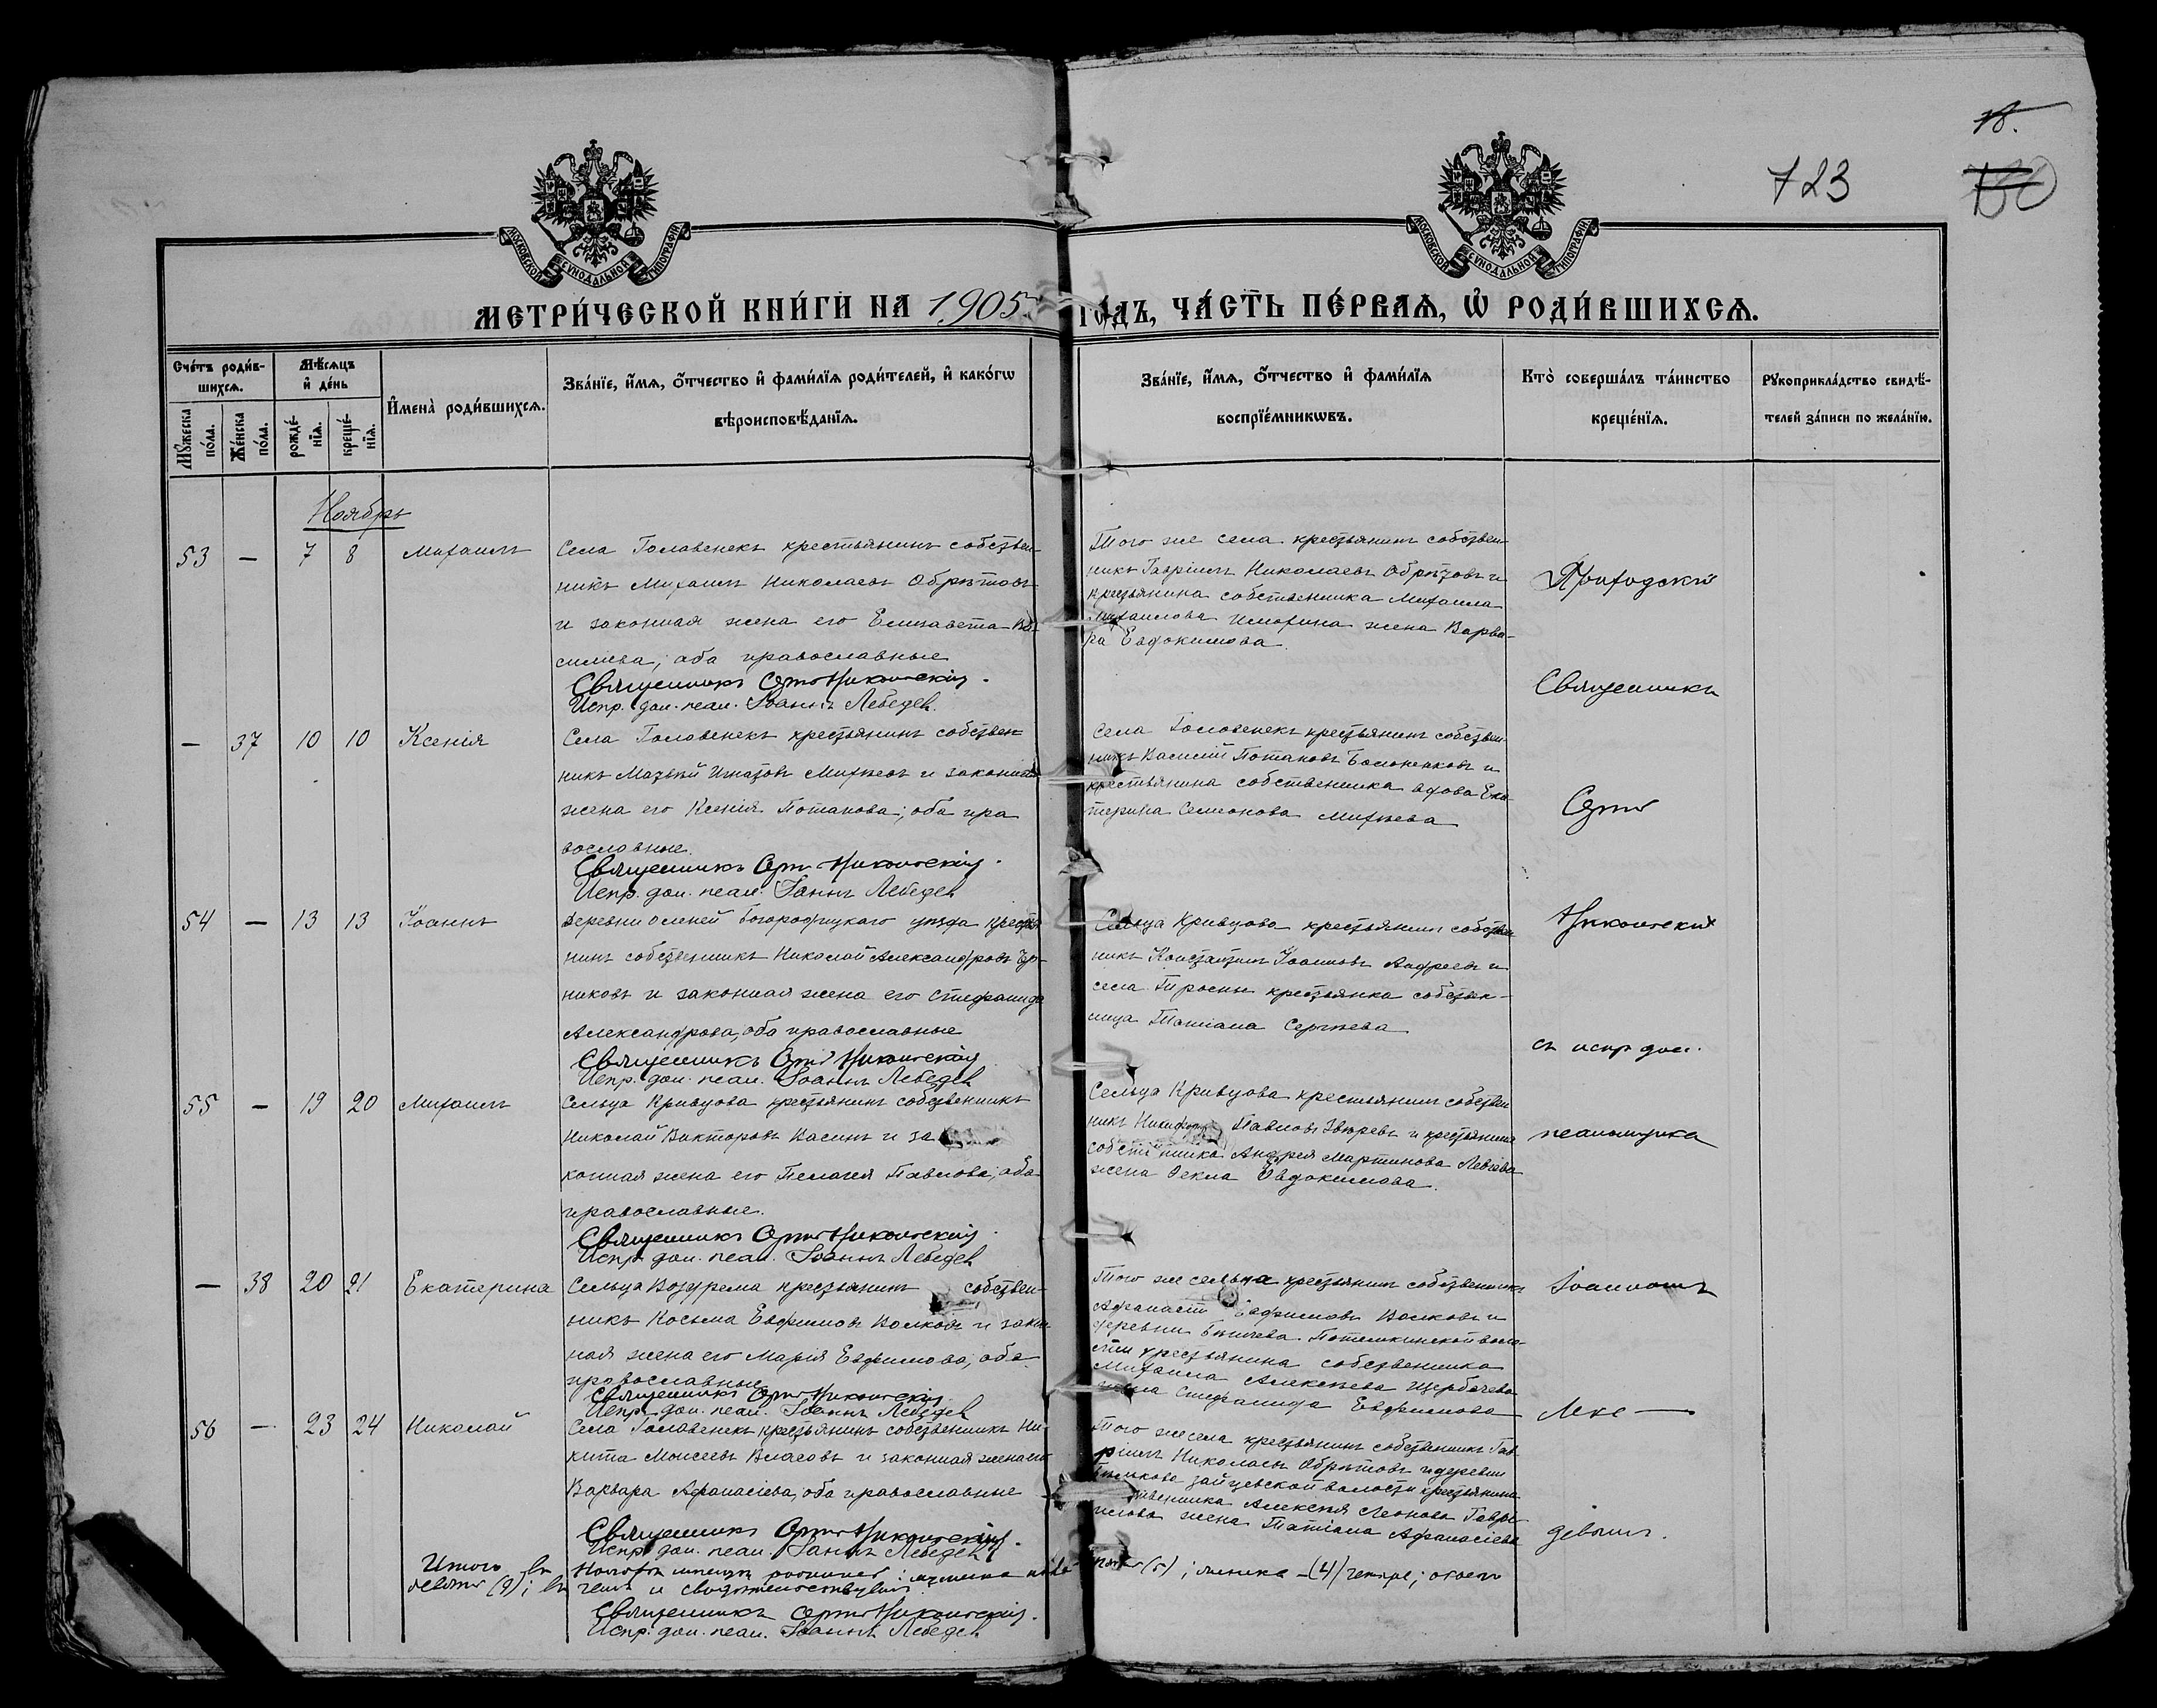 18.
723
МОСКОВСКОЙ СѴНОДАЛЬНОЙ ТИПОГРАФІИ
МОСКОВСКОЙ СѴНОДАЛЬНОЙ ТИПОГРАФІИ
МЕТРИ́ЧЕСКОЙ КНИ́ГИ НА 1905 ГО́ДЪ, ЧА́СТЬ ПЕ́РВАѦ, Ѡ҆ РОДИ́ВШИХСѦ.
Сче́тъ роди́в-
шихсѧ.
Мꙋ́жеска по́ла.
Же́нска по́ла.
Мѣ́сѧцъ
и҆ де́нь
рожде́-
нїѧ.
креще́-
нїѧ.
И҆мена̀ роди́вшихсѧ.
Зва́нїе, и҆́мѧ, ѻ҆́тчество и҆ фами́лїѧ роди́телей, и҆ како́гѡ
вѣроисповѣ́данїѧ.
Зва́нїе, и҆́мѧ, ѻ҆́тчество и҆ фами́лїѧ
воспрїе́мникѡвъ.
Кто̀ соверша́лъ та́инство
креще́нїѧ.
Рꙋкоприкла́дство свидѣ́-
телей за́писи по жела́нїю.
Ноябрь
53 — 7 8 Михаилъ
Села Голавенекъ крестьянинъ собствен-
никъ Михаилъ Николаевъ Обрѣтовъ
и законная жена его Елизавета Ва-
сильева; оба православные
Священникъ Сергій Никольскій.
Испр. дол. псал. Іоаннъ Лебедев.
Того же села крестьянинъ собствен-
никъ Гавріилъ Николаевъ Обрѣтовъ и
крестьянина собственника Михаила
Михаилова жена Варва-
ра Евдокимова.
Приходскій
Священникъ
— 37 10 10 Ксенія
Села Головенекъ крестьянинъ собствен-
никъ Матвѣй Игнатовъ Михѣевъ и законная
жена его Ксенія Потапова; оба пра
вославные.
Священникъ Сергій Никольскій.
Испр. дол. псал. Іоаннъ Лебедев
Села Головенекъ крестьянинъ собствен-
никъ Василій Потаповъ и
крестьянина собственника вдова Ека-
терина Семенова Михѣева
Сергій
54 — 13 13 Іоаннъ
Деревни Оленей Богородицкаго уѣзда крестья
нинъ собственникъ Николай Александровъ
никовъ и законная жена его Стефанида
Александрова, оба православные
Священникъ Сергій Никольскій
Испр. дол. псал. Іоаннъ Лебедев
Сельца Кривцова крестьянинъ собствен
никъ Константинъ Іоанновъ Андреевъ и
села Тросны крестьянка собствен-
ница Татіана Сергѣева
Никольскій
съ испр. дол.
55 — 19 20 Михаилъ
Сельца Кривцова крестьянинъ собственникъ
Николай Викторовъ Васинъ и за
конная жена его Пелагея Павлова, оба
православные.
Священникъ Сергій Никольскій.
Испр. дол. псал. Іоаннъ Лебедев
Сельца Кривцова крестьянинъ собствен
никъ Павловъ Звѣревъ и крестьянина
собственника Андрея Мартинова
жена Фекла Евдокимова.
псаломщика
— 38 20 21 Екатерина
Сельца Возгрема крестьянинъ собствен-
никъ Косьма Евфимовъ Волковъ и закон
ная жена его Марія Евфимова, оба
православные
Священникъ Сергій Никольскій.
Испр. дол. псал. Іоаннъ Лебедев
Того же сельца крестьянинъ собственникъ
Афанасій Евфимовъ Волковъ и
деревни Потемкинской воло-
сти крестьянина собственника
Михаила Алексѣева Щербачева
жена Стефанида Евфимова
Іоанномъ
Лебе—
56 — 23 24 Николай
Села Головенекъ крестьянинъ собственникъ Ни-
кита Моисеевъ Власовъ и законная жена его
Варвара Афанасіева, оба православные
Священникъ Сергій Никольскій.
Испр. дол. псал. Іоаннъ Лебедев
Того же села крестьянинъ собственникъ Гав-
ріилъ Николаевъ Обрѣтовъ и деревни
Зайцевской волости крестьянина
собственника Алексѣя Леонова Гаври-
лова жена Татіана Афанасіева
девымъ.
Итого въ Ноябрѣ мѣсяцѣ родилось: мужска пола
(5); женска —(4) четыре; обоего
девять (9); въ чемъ и свидѣтельствуемъ
Священникъ Сергій Никольскій.
Испр. дол. псал. Іоаннъ Лебедев